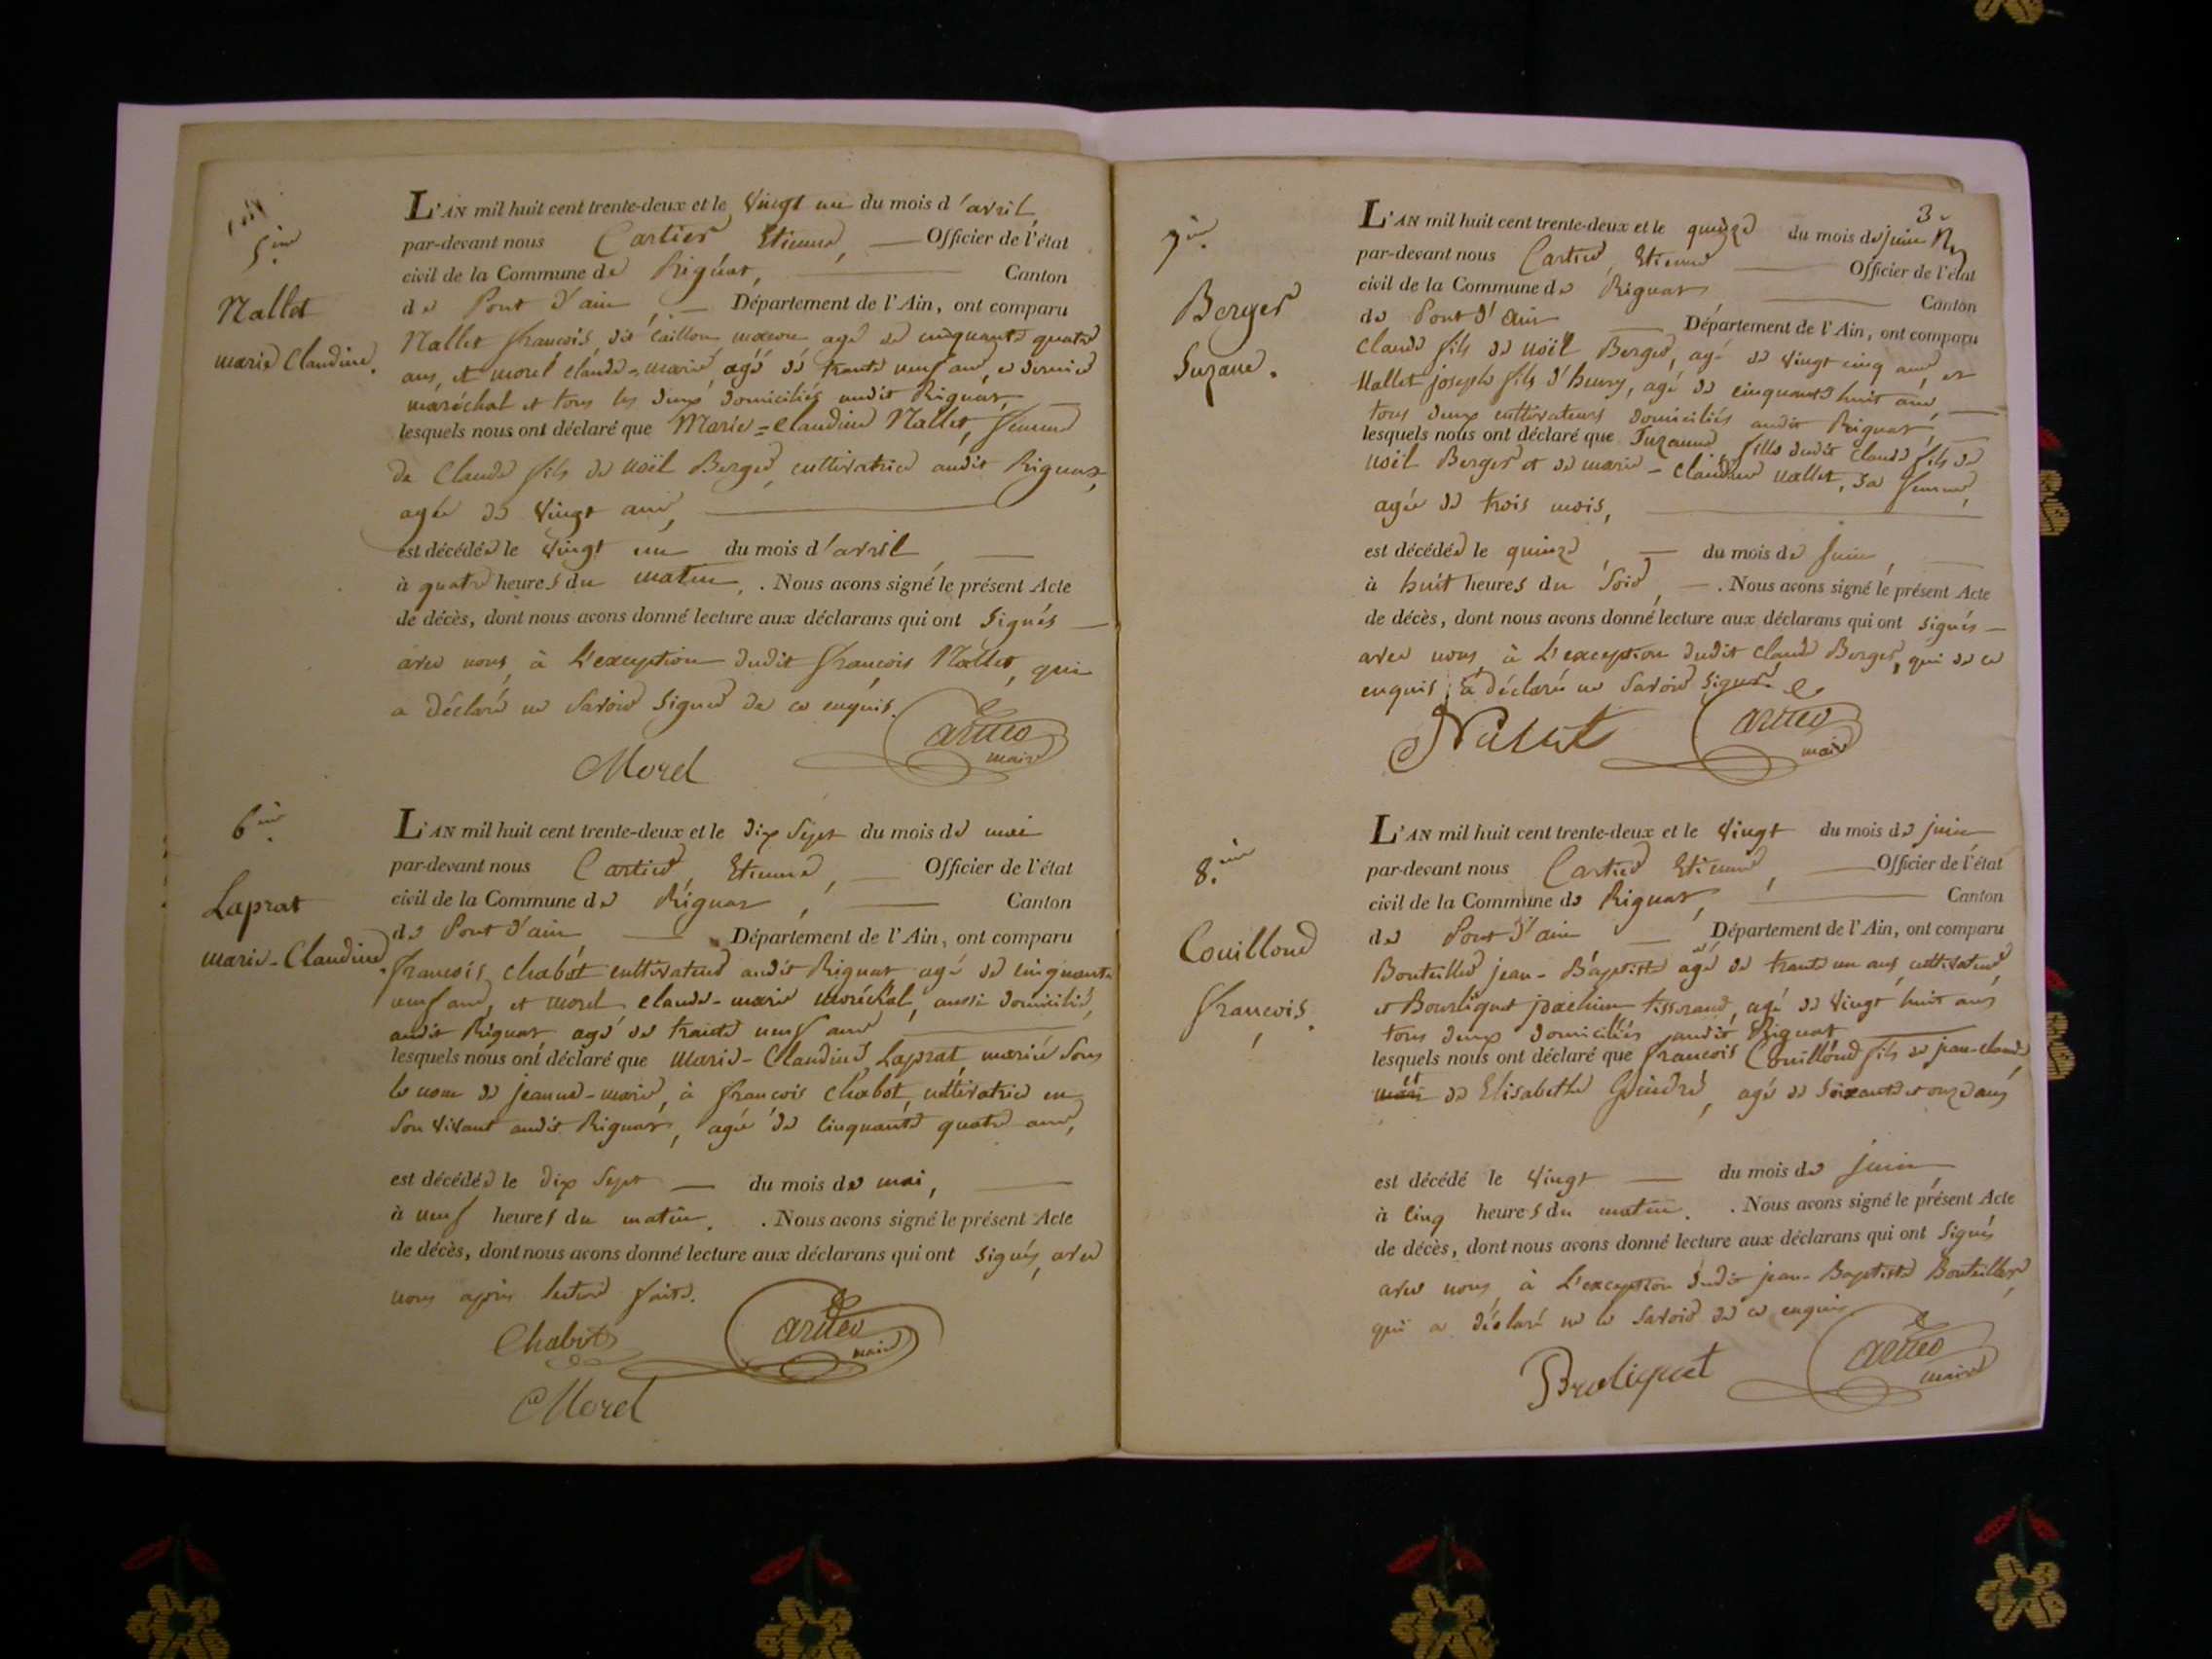 5.ème
Nallet
marie Claudine.
L'AN mil huit cent trente-deux et le vingt un du mois d'avril,
par-devant nous Cartier Etienne, — Officier de l'état
civil de la Commune de Rignat, — Canton
de Pont d'ain, — Département de l'Ain, ont comparu
Nallet françois dit caillon maçon agé de cinquante quatre
ans, et morel claude-marie, agé de trante neuf ans, ce dernier
maréchal et tous les deux domiciliés audit Rignat, —
lesquels nous ont déclaré que Marie=Claudine Nallet, femme
de Claude fils de Noël Berger, cultivatrice audit Rignat,
agée de vingt ans, —
est décédée le vingt un du mois d'avril, —
à quatre heures du matin, . Nous avons signé le présent Acte
de décès, dont nous avons donné lecture aux déclarans qui ont signés —
avec nous, à L'exception dudit françois Nallet, qui
a déclaré ne savoir signer de ce enquis.
Morel
Cartier
maire
6.ème
Laprat
marie-Claudine.
L'AN mil huit cent trente-deux et le dix sept du mois de mai
par-devant nous Cartier, Etienne, — Officier de l'état
civil de la Commune de Rignat, — Canton
de Pont d'ain, — Département de l'Ain, ont comparu
françois chabot cultivateur audit Rignat agé de cinquante
neuf ans, et morel claude-marie maréchal, aussi domicilié,
audit Rignat, agé de trante neuf ans —
lesquels nous ont déclaré que marie-Claudine Laprat, mariée sous
le nom de jeanne-marie, à françois chabot, cultivatrice en
son vivant audit Rignat, agée de cinquante quatre ans,
est décédée le dix sept — du mois de mai, —
à neuf heures du matin. . Nous avons signé le présent Acte
de décès, dont nous avons donné lecture aux déclarans qui ont signés, avec
nous après lecture faite.
Chabot
Cartier
maire
Morel
3
7.ème
Berger
Suzane.
L'AN mil huit cent trente-deux et le quinze du mois de juin
par-devant nous Cartier, Etienne — Officier de l'état
civil de la Commune de Rignat, — Canton
de Pont d'ain — Département de l'Ain, ont comparu
Claude fils de noël Berger, agé de vingt cinq ans, et
Nallet joseph fils d'henry, agé de cinquante huit ans, —
tous deux cultivateurs domiciliés audit Rignat, —
lesquels nous ont déclaré que Suzanne, fille dudit claude fils de
noël Berger et de marie-claudine nallet, sa femme,
agée de trois mois, —
est décédée le quinze — du mois de juin, —
à huit heures du soir, — . Nous avons signé le présent Acte
de décès, dont nous avons donné lecture aux déclarans qui ont signés —
avec nous, à L'exception dudit claude Berger, qui de ce
enquis, a déclaré ne savoir signer.
Nallet
Cartier
maire
8.ème
Couilloud
françois.
L'AN mil huit cent trente-deux et le vingt du mois de juin
par-devant nous Cartier Etienne, — Officier de l'état
civil de la Commune de Rignat, — Canton
de Pont d'ain — Département de l'Ain, ont comparu
Bouteiller jean-Baptiste agé de trante un ans, cultivateur
et Bourliquet joachim, tisserand, agé de vingt huit ans,
tous deux domiciliés audit Rignat —
lesquels nous ont déclaré que françois Couilloud fils de jean-claude,
mari et de Elisabethe Goindre, agé de soixante et onze ans
est décédé le vingt — du mois de juin
à cinq heures du matin. . Nous avons signé le présent Acte
de décès, dont nous avons donné lecture aux déclarans qui ont signés
avec nous, à L'exception dudit jean-Baptiste Bouteiller,
qui a déclaré ne le savoir de ce enquis.
Cartier
maire